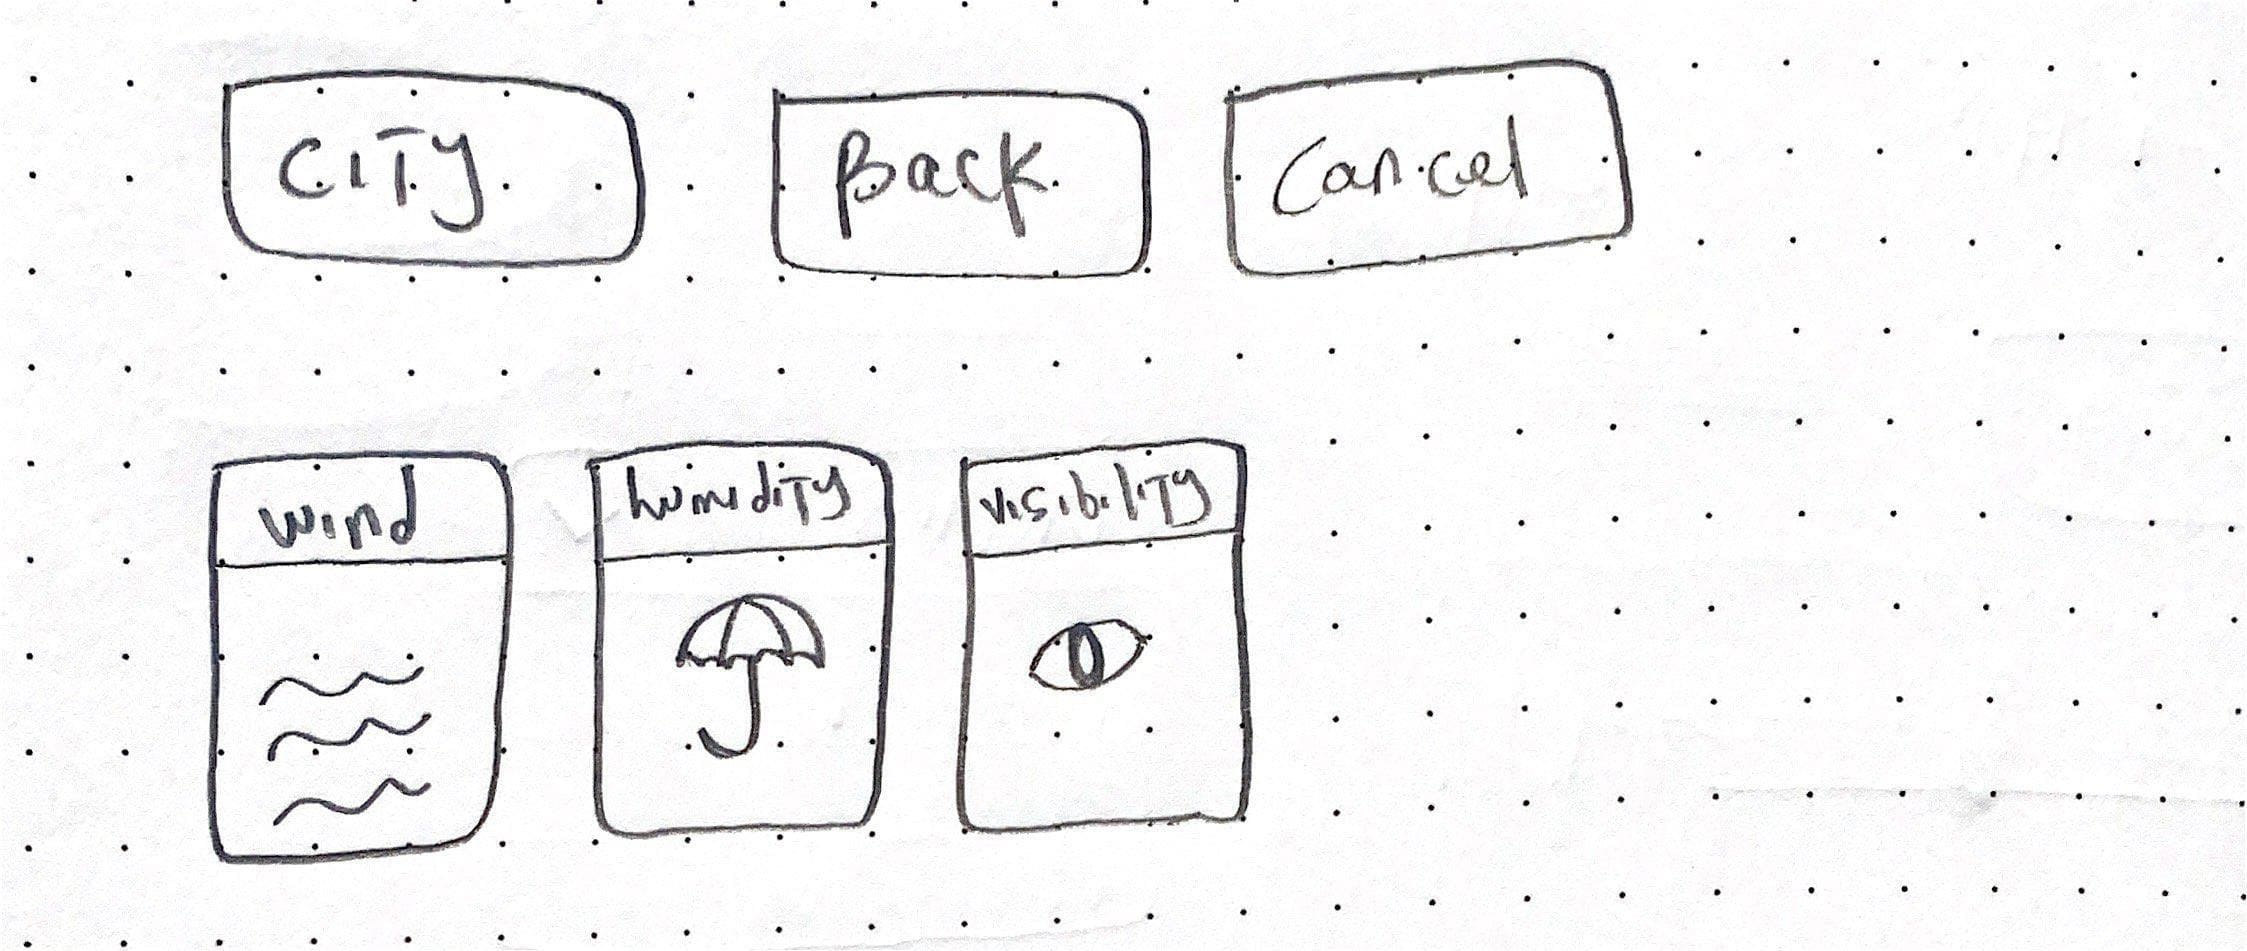 CITY
Back
Cancel
wind
humidity
visibility